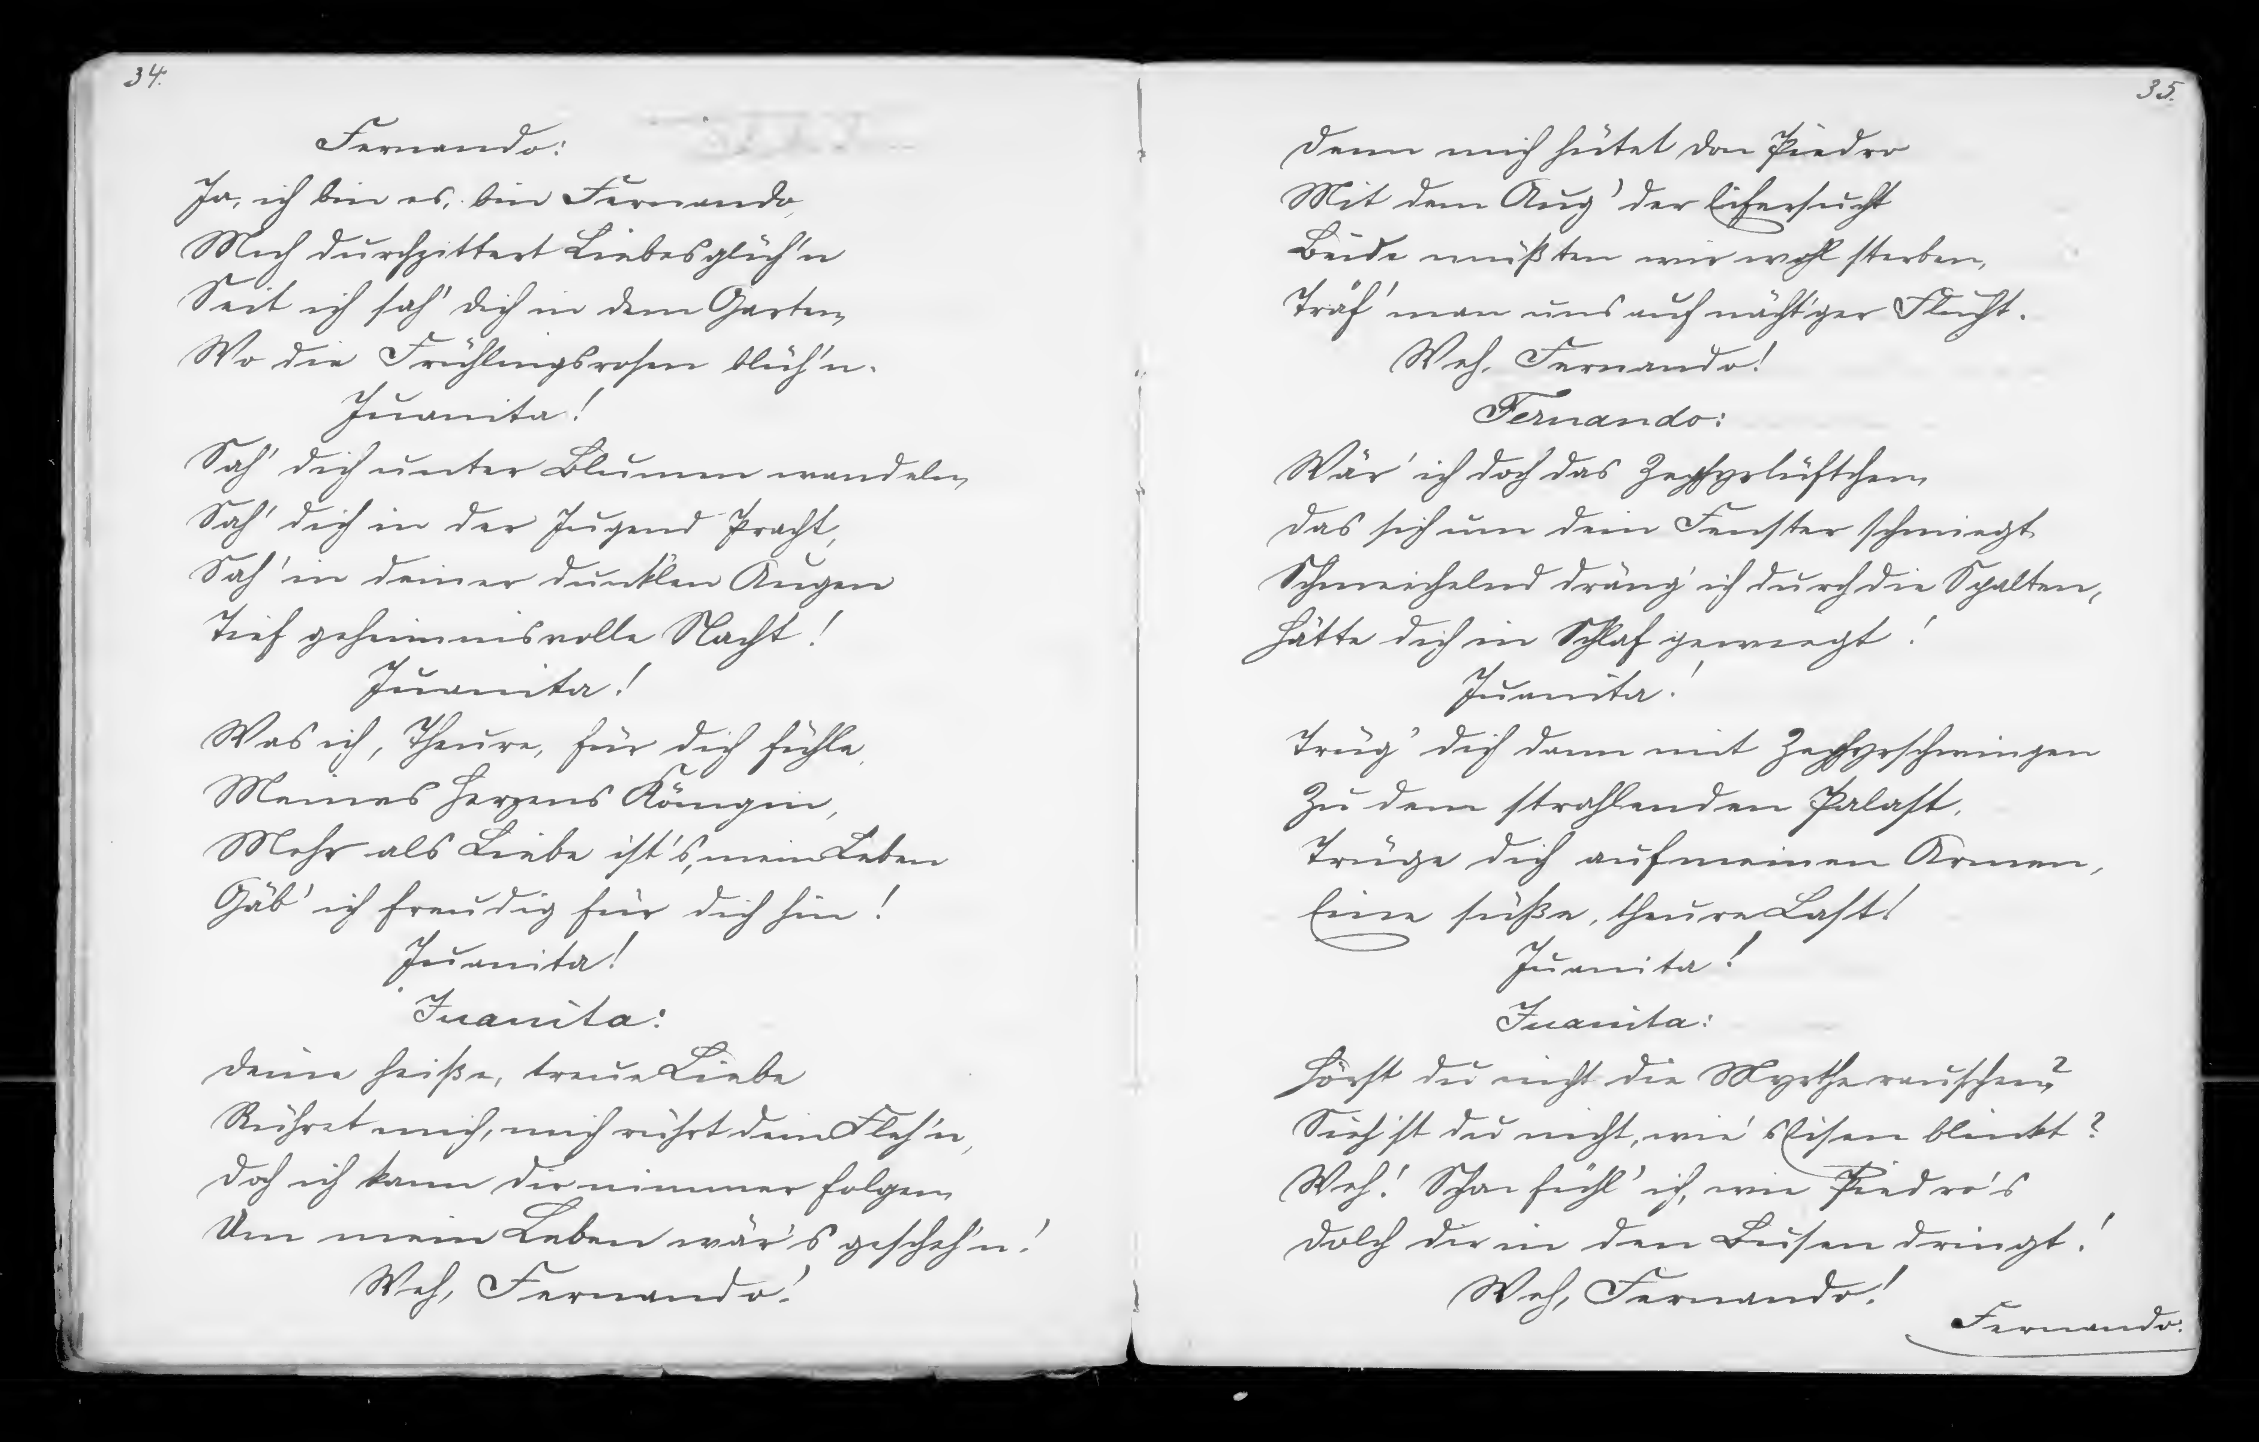 34.
Fernando:
Ja, ich bin es, bin Fernando,
Mich durchzittert Liebesglüh'n
Seit ich sah' dich in dem Garten,
Wo die Frühlingsrosen blüh'n.
Juanita!
Sah' dich unter Blumen wandeln,
Sah' dich in der Jugend Pracht,
Sah' in deiner dunklen Augen
Tief geheimnisvolle Nacht!
Juanita!
Was ich, Theure, für dich fühle,
Meines Herzens Königin,
Mehr als Liebe ist's, mein Leben
Gäb' ich freudig für dich hin!
Juanita!
Juanita:
Deine heiße, treue Liebe
Rühret mich, mich rührt dein Fleh'n,
Doch ich kann dir nimmer folgen,
Um mein Leben wär's gescheh'n!
Weh, Fernando!
35.
Denn mich hütet don Piedro
Mit dem Aug' der Eifersucht
Beide müßten wir wohl sterben,
Träf' man uns auf nächt'ger Flucht.
Weh, Fernando!
Fernando:
Wär' ich doch das Zephyrlüftchen,
Das sich um dein Fenster schmiegt
Schmeichelnd dräng' ich durch die Spalten,
Hätte dich in Schlaf gewiegt!
Juanita!
Trüg' dich dann mit Zephyrschwingen
Zu dem strahlenden Palast,
Trüge dich auf meinen Armen,
Eine süße, theure Last!
Juanita!
Juanita:
Hörst du nicht die Myrthe rauschen?
Sieh'st du nicht, wie's Eisen blinkt?
Weh! Schon fühl' ich, wie Piedro's
Dolch dir in den Busen dringt!
Weh, Fernando!
Fernando: